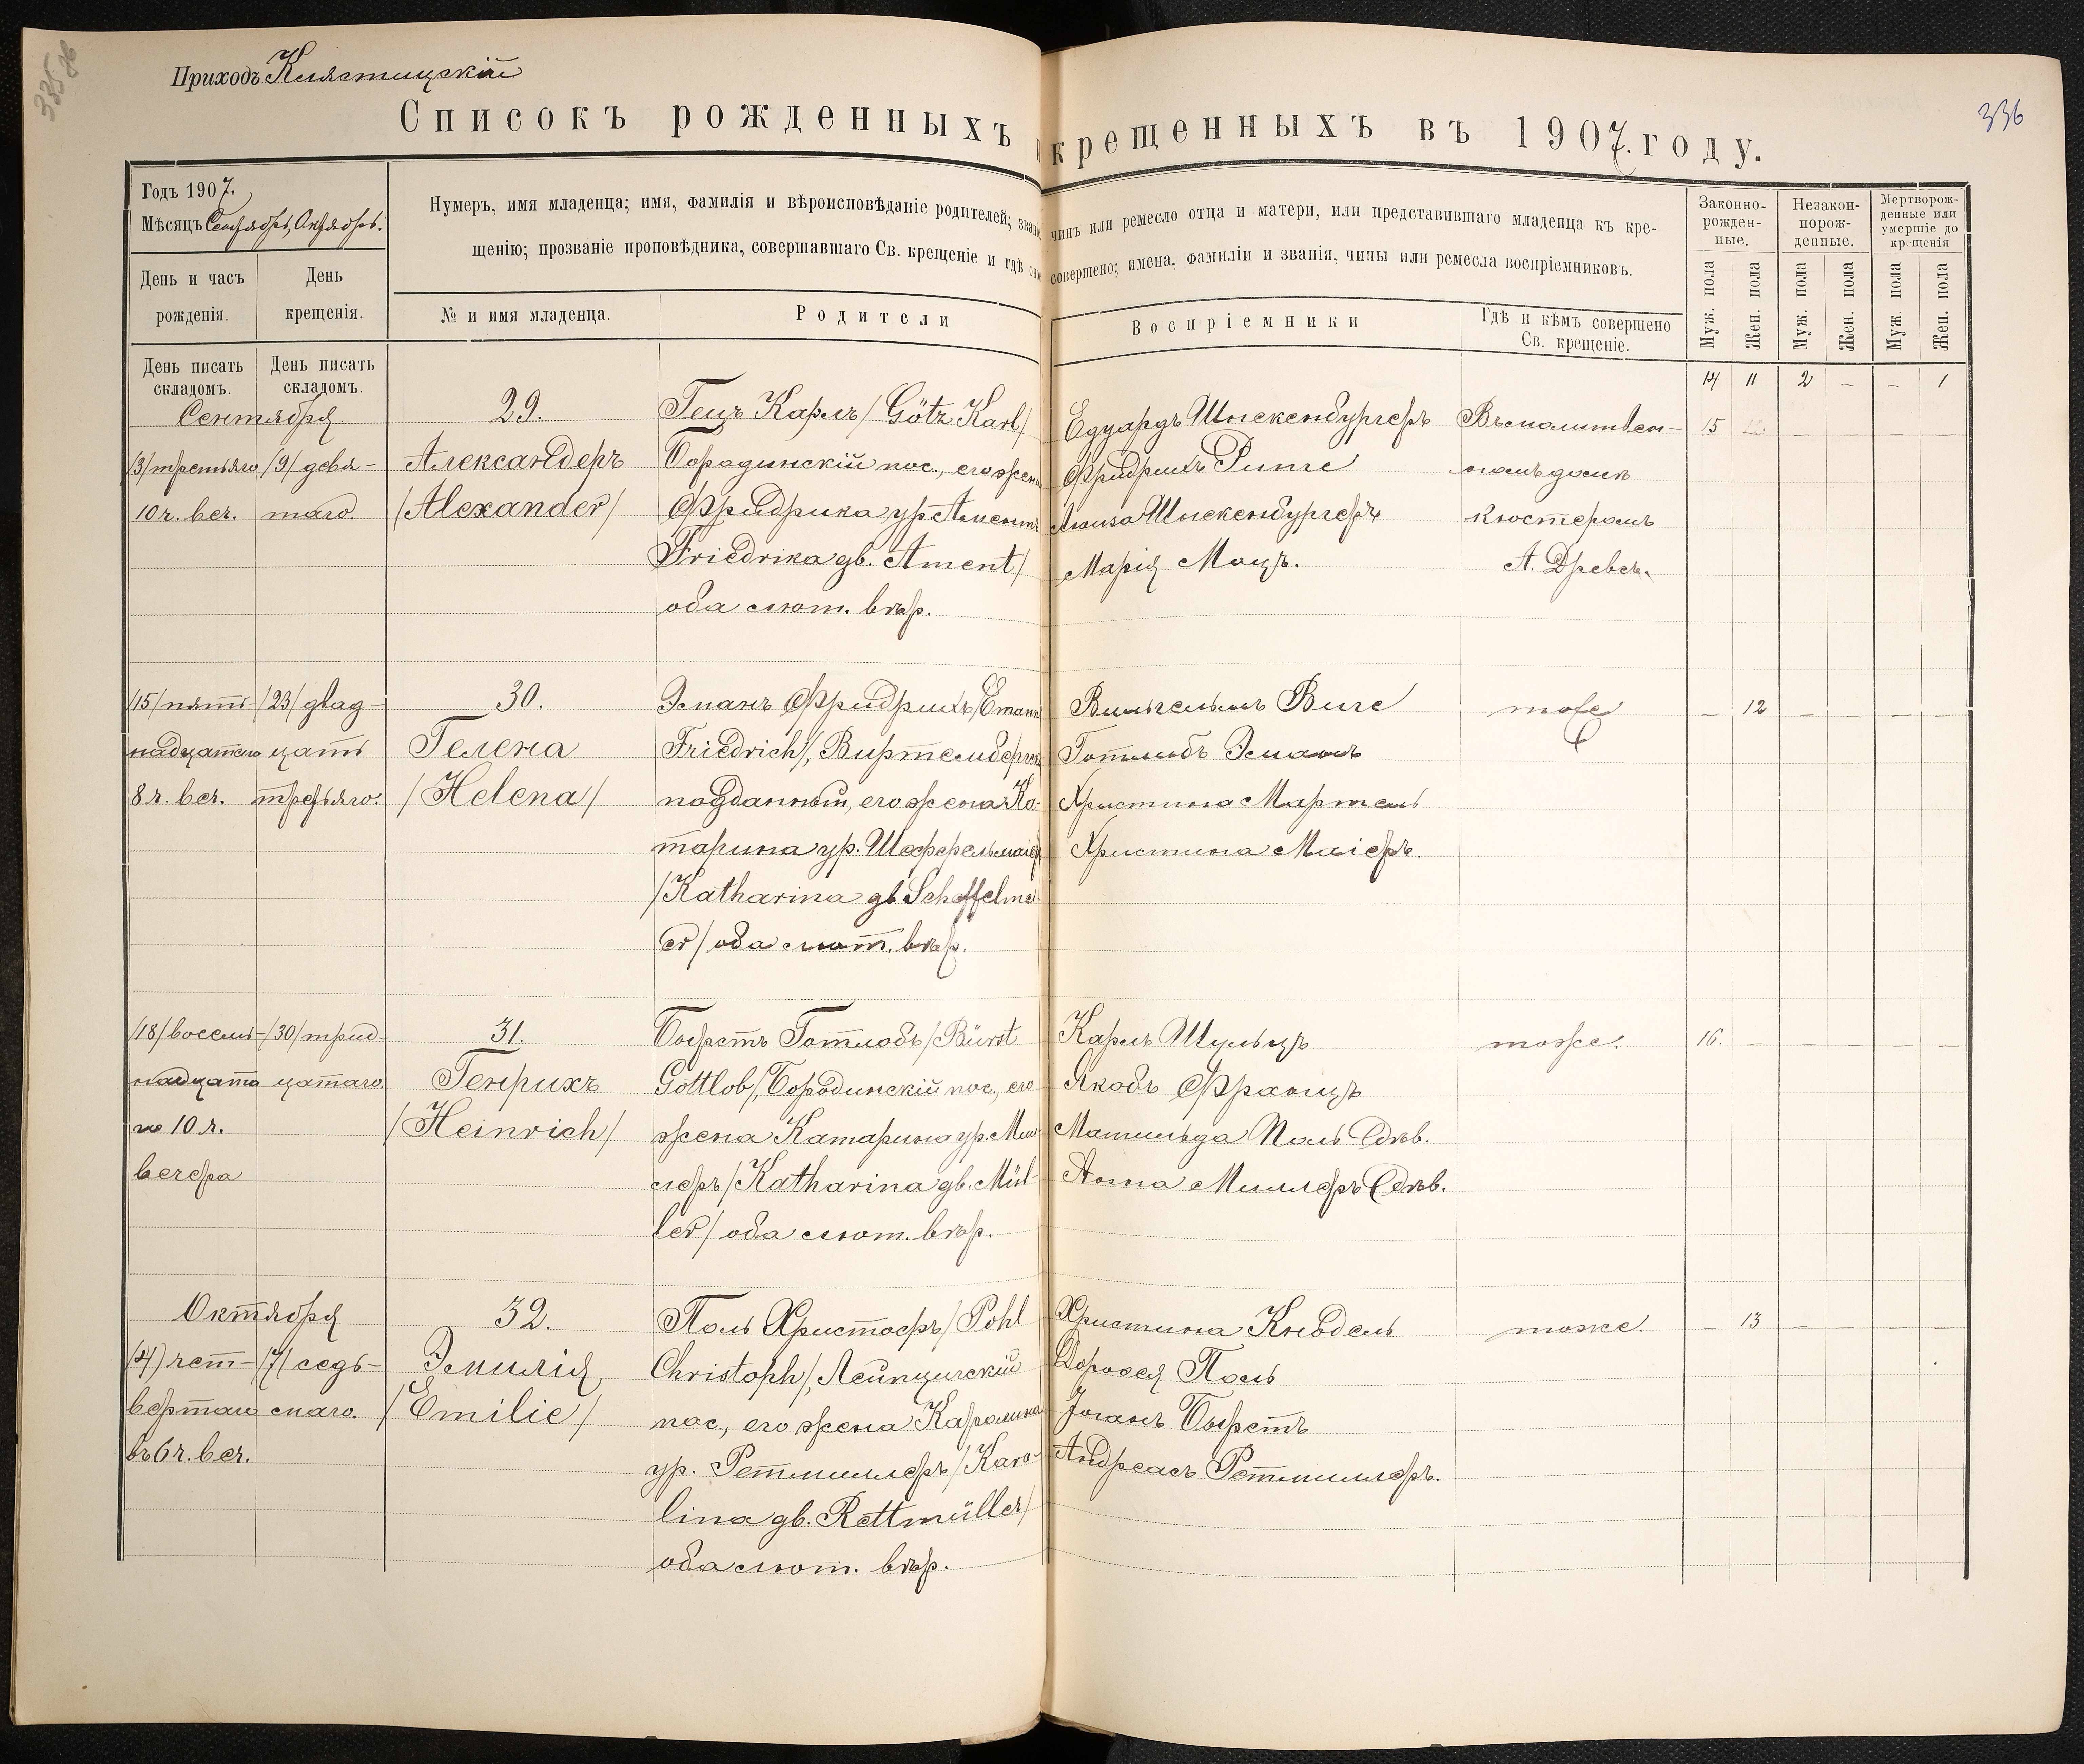 335 об
Приходъ Клястицкій
Списокъ рожденныхъ
крещенныхъ въ 1907. году.
336
Годъ 1907.
Мѣсяцъ Сентябрь, Октябрь.
День и часъ рожденія.
День крещенія.
Нумеръ, имя младенца; имя, фамилія и вѣроисповѣданіе родителей; званіе
чинъ или ремесло отца и матери, или представившаго младенца къ кре-
щенію; прозваніе проповѣдника, совершавшаго Св. крещеніе и гдѣ
совершено; имена, фамиліи и званія, чины или ремесла воспріемниковъ.
№ и имя младенца.
Родители
Воспріемники
Гдѣ и кѣмъ совершено Св. крещеніе.
Законно-рожден-ные.
Незакон-норож-денные.
Мертворож-денные или умершіе до крещенія
Муж. пола
Жен. пола
Муж. пола
Жен. пола
Муж. пола
Жен. пола
День писать складомъ.
День писать складомъ.
14 11 2 — — 1
Сентября
/3/ третьяго
10 ч. веч.
/9/ девя-
таго.
29.
Александеръ
/Alexander/
Гецъ Карлъ / Götz Karl/
Бородинскій пос., его жена
Фридрика ур. Аментъ
Friedrika gb. Ament/
оба лют. вѣр.
Едуардъ Шнекенбургеръ
Фридрихъ
Луиза Шнекенбургеръ
Марія Моцъ.
Въ молитвен-
номъ домѣ
кюстеромъ
А. Древсъ.
15 — — — —
/15/ пят-
надцатаго
8 ч. веч.
/23/ двад-
цать
третьяго.
30.
Гелена
/Helena/
Эманъ Фридрихъ /Emann
Friedrich/, Виртембергскій
подданный, его жена Ка-
тарина ур. Шеффельмаіеръ
/Katharina gb. Scheffelmei-
er/ оба лют. вѣр.
Вильгельмъ
Готлибъ Эманъ
Христина Мартель
Христина Маіеръ.
тоже
— 12 — — — —
/18/ восем-
надцата
го 10 ч.
вечера
/30/ трид-
цатаго.
31.
Генрихъ
/Heinrich/
Бюрстъ Готлобъ /Bürst
Gottlob/, Бородинскій пос., его
жена Катарина ур. Мил-
леръ /Katharina gb. Mül-
ler/ оба лют. вѣр.
Карлъ Шульцъ
Якобъ Францъ
Матильда Поль Дѣв.
Анна Миллеръ Дѣв.
тоже.
16. — — — — —
Октября
/4/ чет-
вертаго
въ 6 ч. веч.
/7/ седь-
маго.
32.
Эмилія
/Emilie/
Поль Христофъ / Pohl
Christoph/, Лейпцигскій
пос., его жена Каролина
ур. Ретмиллеръ /Karo-
lina gb. Rettmüller/
оба лют. вѣр.
Христина Кнодель
Доротея Поль
Іоганъ Бюрстъ
Андреасъ Ретмиллеръ.
тоже.
— 13 — — — —